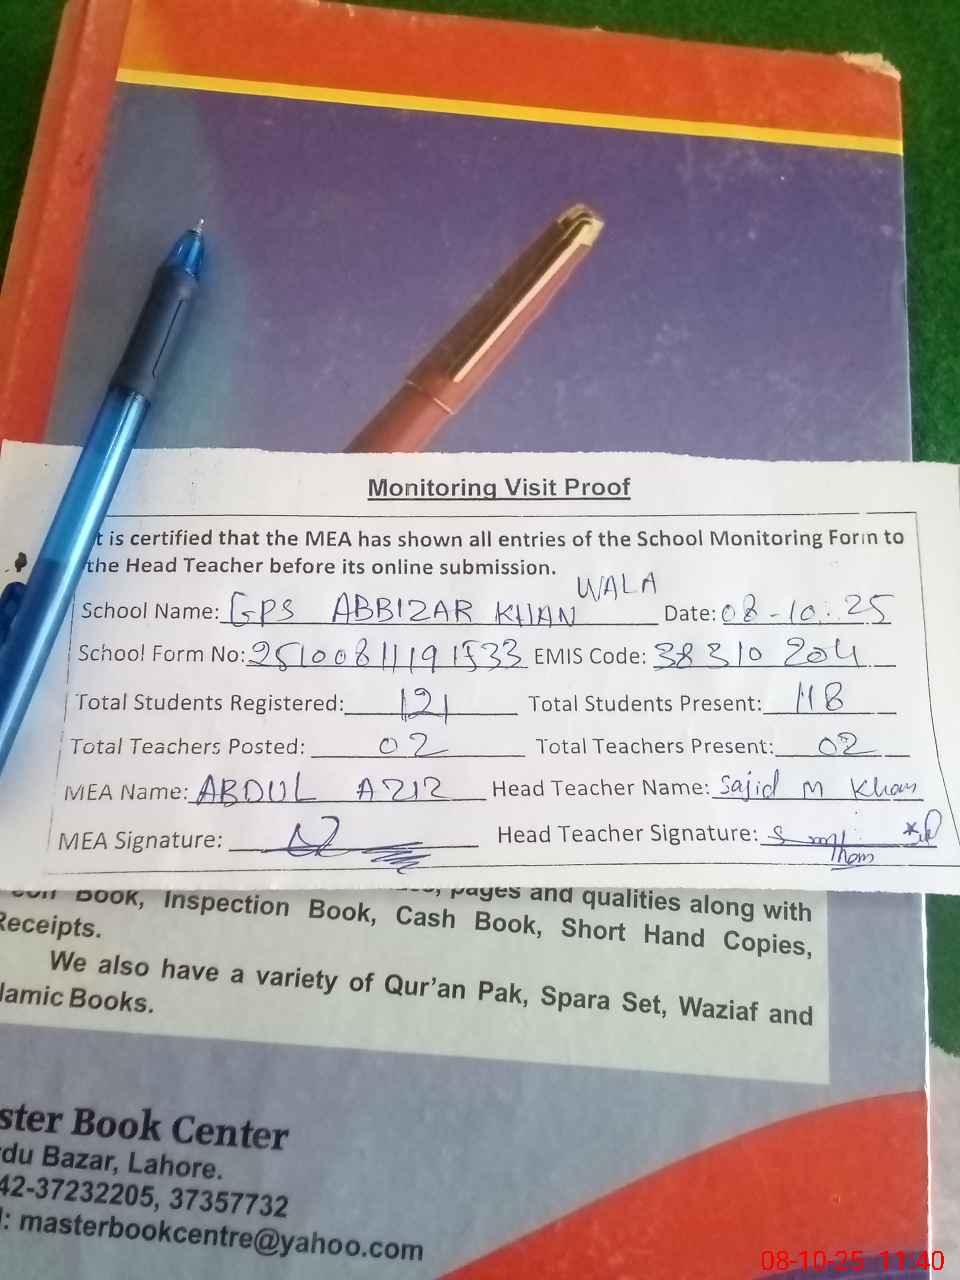 Monitoring Visit Proof
t is certified that the MEA has shown all entries of the School Monitoring Form to
the Head Teacher before its online submission.
School Name: GPS ABBIZAR KHAN WALA Date: 08-10-25
School Form No: 2510081119 1533 EMIS Code: 38310 204
Total Students Registered: 121 Total Students Present: 118
Total Teachers Posted: 02 Total Teachers Present: 02
MEA Name: ABDUL AZIZ Head Teacher Name: Sajid M Khan
MEA Signature: Head Teacher Signature:
Book, Inspection Book, Cash Book, Short Hand Copies,
pages and qualities along with
Receipts.
We also have a variety of Qur'an Pak, Spara Set, Waziaf and
lamic Books.
ster Book Center
du Bazar, Lahore.
42-37232205, 37357732
l: masterbookcentre@yahoo.com
08-10-25 11:40